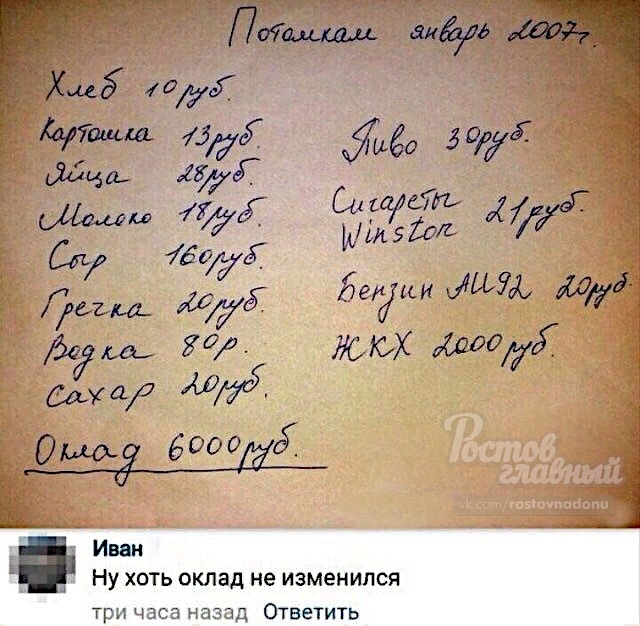 Потомкам январь 2007г.
Хлеб 10руб.
Картошка 13руб.
Яйца 28руб.
Молоко 18руб.
Сыр 160руб.
Гречка 20руб.
Водка 80р.
Сахар 20руб.
Оклад 6000руб.
Пиво 30руб.
Сигареты
Winston 21руб.
Бензин АИ92 20руб.
ЖКХ 2000руб.
Ростов
главный
vk.com/rostovnadonu
Иван
Ну хоть оклад не изменился
три часа назад Ответить